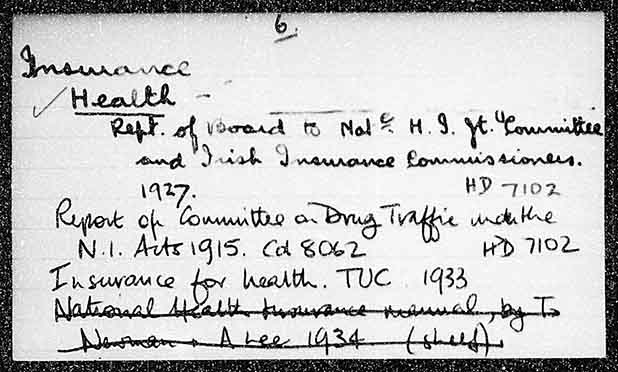 6.
Insurance
✓ Health -
Rept. of Board to Natl. H. I. Jt. Committee
and Irish Insurance Commissioners.
1927. HD 7102
Report of Committee on Drug Traffic under the
N.I. Acts 1915. Cd 8062 HD 7102
Insurance for health. TUC 1933
National Health Insurance manual, by T.
Newman & A Lee 1934 (shelf).